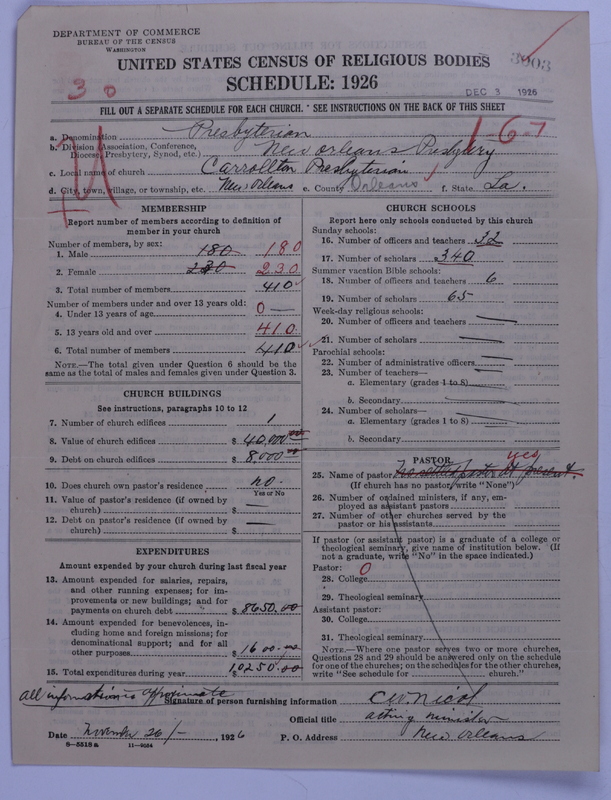 DEPARTMENT OF COMMERCE
BUREAU OF THE CENSUS
WASHINGTON
UNITED STATES CENSUS OF RELIGIOUS BODIES
SCHEDULE: 1926
3 0
DEC 3 1926
FILL OUT A SEPARATE SCHEDULE FOR EACH CHURCH. SEE INSTRUCTIONS ON THE BACK OF THIS SHEET
1-6-7
a. Denomination Presbyterian
b. Division (Association, Conference, Diocese, Presbytery, Synod, etc.) New Orleans Presbytery
c. Local name of church Carrollton Presbyterian
d. City, town, village, or township, etc. New Orleans e. County Orleans f. State La.
MEMBERSHIP
Report number of members according to definition of
member in your church
Number of members, by sex:
1. Male 180 180
2. Female 230 230
3. Total number of members 410
Number of members under and over 13 years old:
4. Under 13 years of age 0
5. 13 years old and over 410
6. Total number of members 410
NOTE.—The total given under Question 6 should be
same as the total of males and females given under Question 3.
CHURCH BUILDINGS
See instructions, paragraphs 10 to 12
7. Number of church edifices 1
8. Value of church edifices $ 40,000 00
9. Debt on church edifices $ 8,000 00
10. Does church own pastor's residence no
Yes or No
11. Value of pastor's residence (if owned by
church) $ —
12. Debt on pastor's residence (if owned by
church) $ —
EXPENDITURES
Amount expended by your church during last fiscal year
13. Amount expended for salaries, repairs,
and other running expenses; for im-
provements or new buildings; and for
payments on church debt $ 8650.00
14. Amount expended for benevolences, in-
cluding home and foreign missions; for
denominational support; and for all
other purposes $ 1600.00
15. Total expenditures during year $ 10,250.00
CHURCH SCHOOLS
Report here only schools conducted by this church
Sunday schools:
16. Number of officers and teachers 32
17. Number of scholars 340
Summer vacation Bible schools:
18. Number of officers and teachers 6
19. Number of scholars 65
Week-day religious schools:
20. Number of officers and teachers —
21. Number of scholars —
Parochial schools:
22. Number of administrative officers —
23. Number of teachers—
a. Elementary (grades 1 to 8) —
b. Secondary —
24. Number of scholars—
a. Elementary (grades 1 to 8) —
b. Secondary —
PASTOR
yes
25. Name of pastor No settled pastor at present.
(If church has no pastor, write "None")
26. Number of ordained ministers, if any, em-
ployed as assistant pastors
27. Number of other churches served by the
pastor or his assistants
If pastor (or assistant pastor) is a graduate of a college or
theological seminary, give name of institution below. (If
not a graduate, write "No" in the space indicated.)
Pastor: 0
28. College
29. Theological seminary
Assistant pastor:
30. College
31. Theological seminary
NOTE.—Where one pastor serves two or more churches,
Questions 28 and 29 should be answered only on the schedule
for one of the churches; on the schedules for the other churches,
write "See schedule for church."
all information is approximate
Signature of person furnishing information C W Nicol
Official title acting minister
Date November 26/- , 1926 P. O. Address New Orleans
8-5518a 11-9024